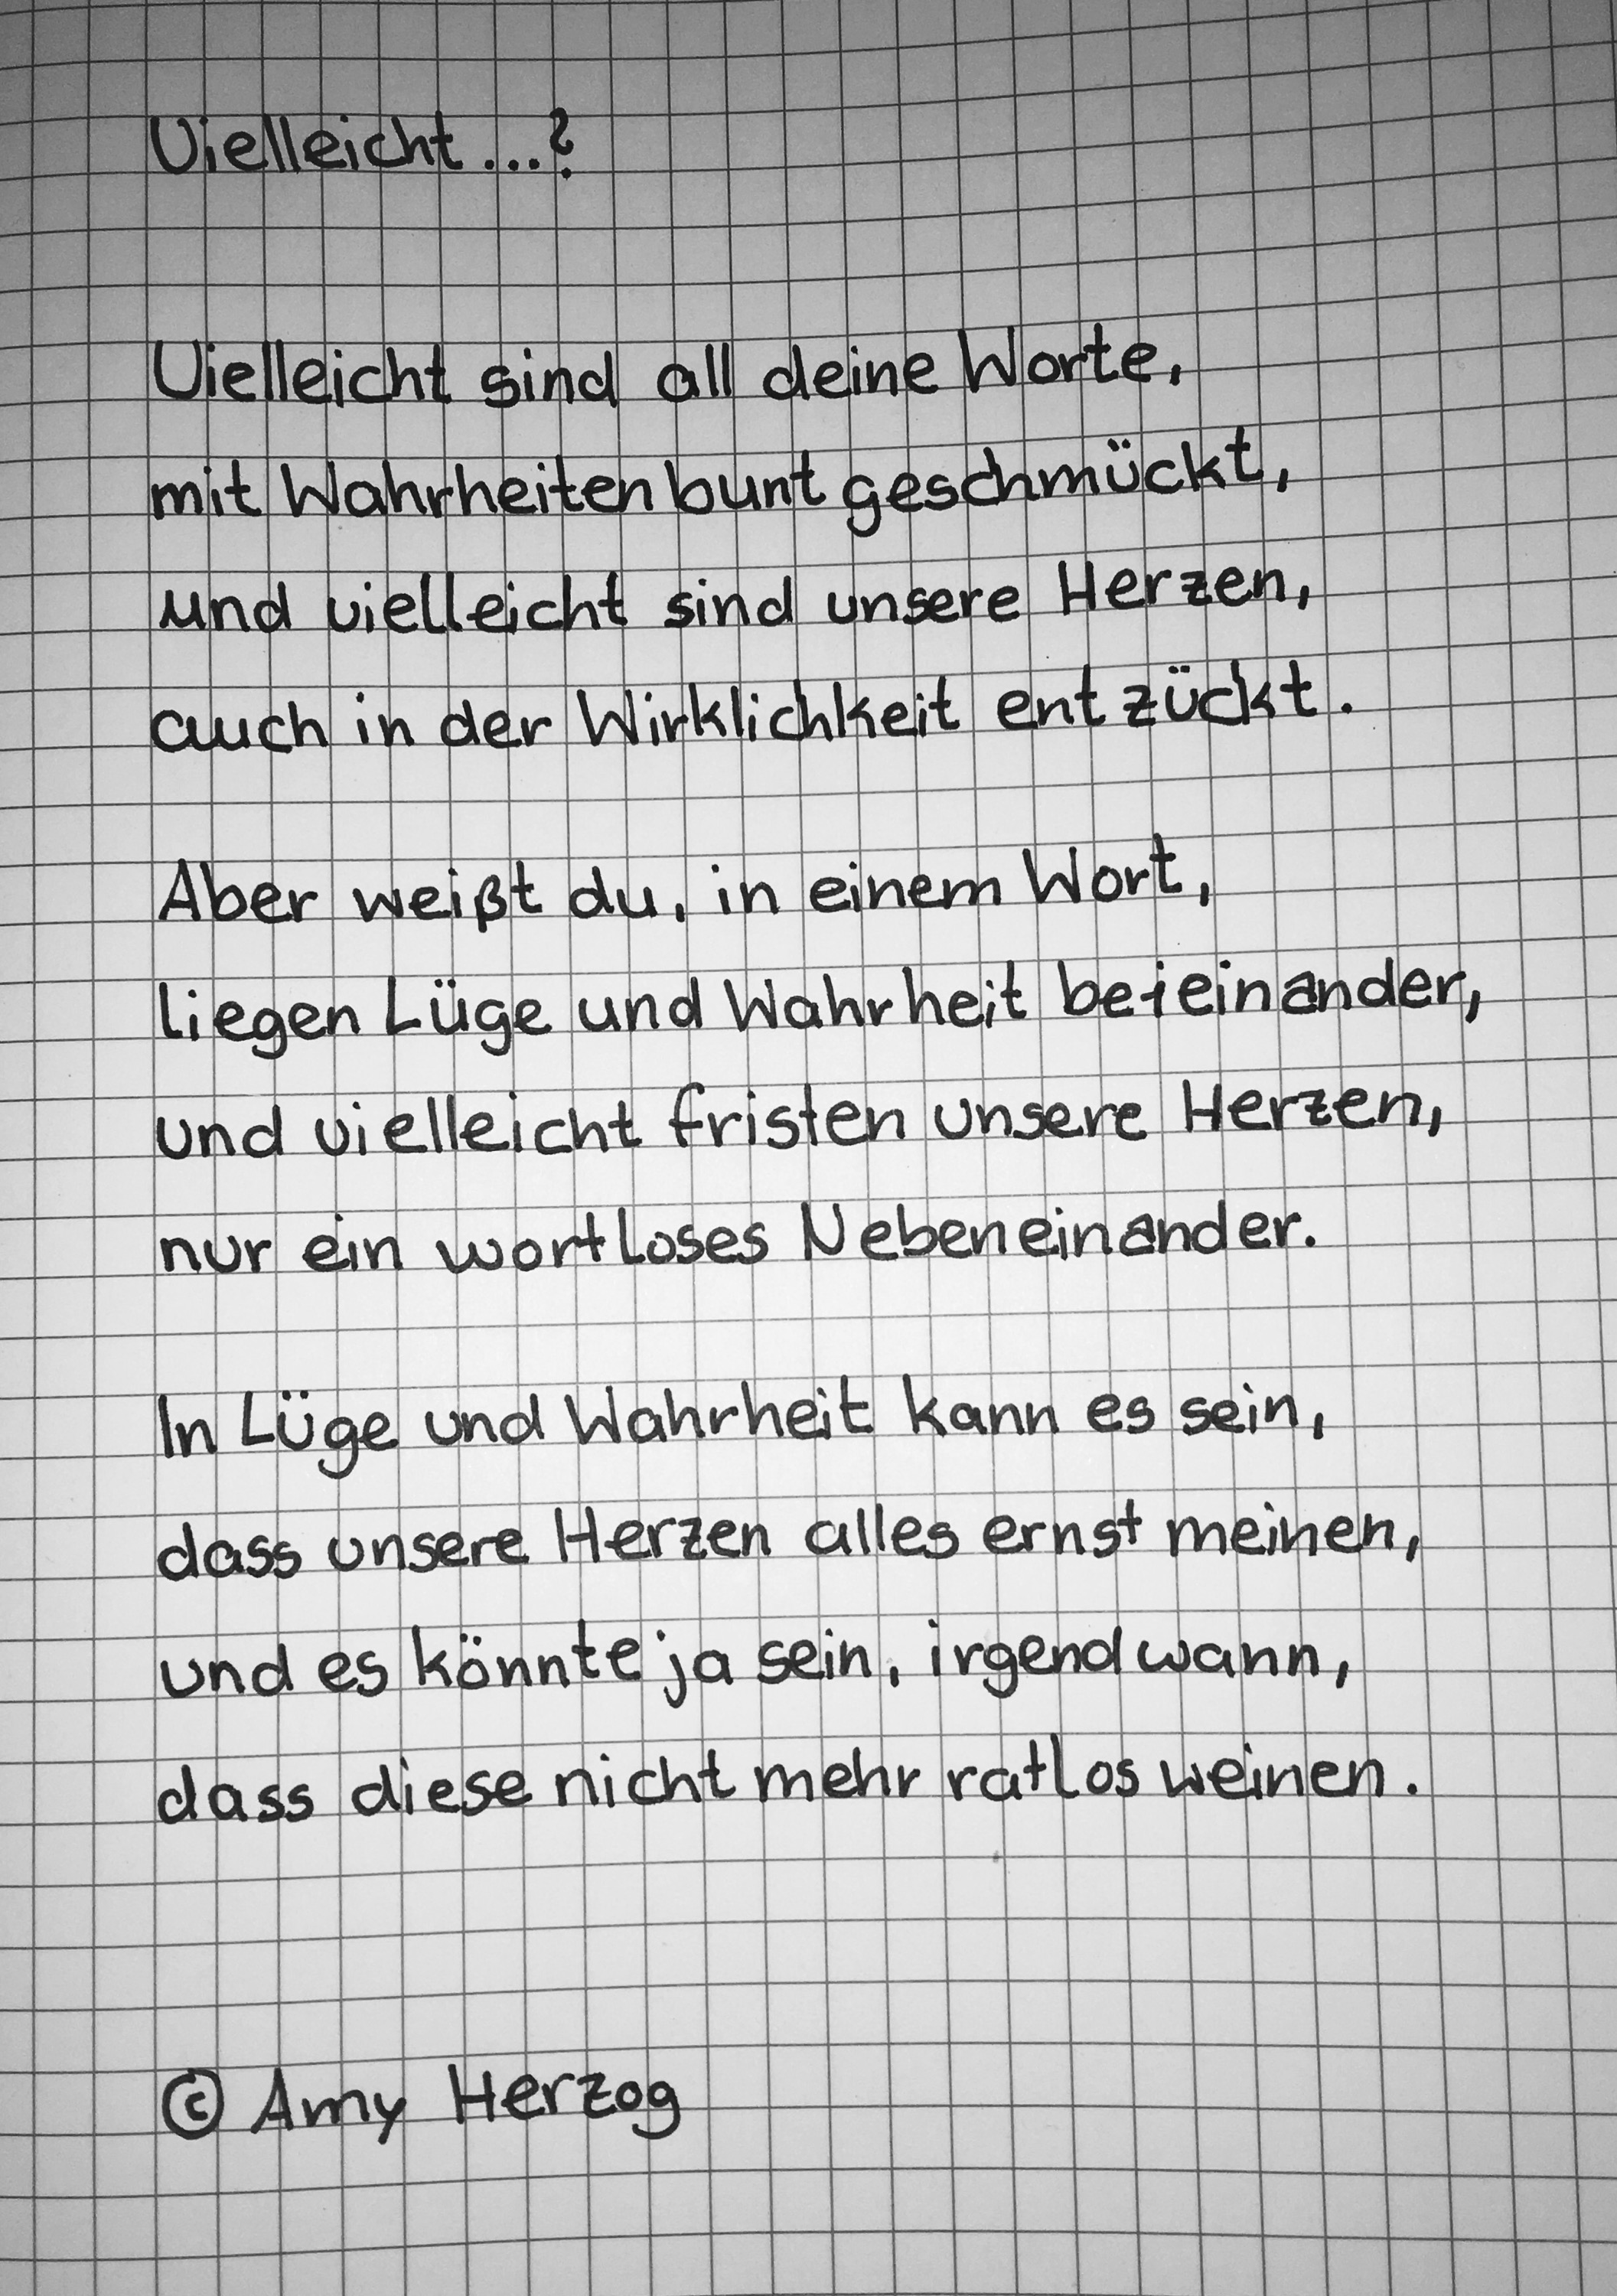 Vielleicht...?
Vielleicht sind all deine Worte,
mit Wahrheiten bunt geschmückt,
und vielleicht sind unsere Herzen,
auch in der Wirklichkeit entzückt.
Aber weißt du, in einem Wort,
liegen Lüge und Wahrheit beieinander,
und vielleicht fristen unsere Herzen,
nur ein wortloses Nebeneinander.
In Lüge und Wahrheit kann es sein,
dass unsere Herzen alles ernst meinen,
und es könnte ja sein, irgendwann,
dass diese nicht mehr ratlos weinen.
© Amy Herzog